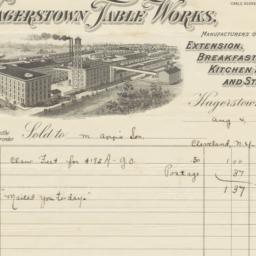 CABLE ADDRE
HAGERSTOWN TABLE WORKS,
MANUFACTURERS O
EXTENSION,
BREAKFAST
KITCHEN
AND ST
Hagerstow
Aug 4
Sold to M. Son,
Cleveland, N.Y.
Claw Feet for #192 A - G.O. 50 1 00
Postage 37
1 37
"Mailed you to-day"